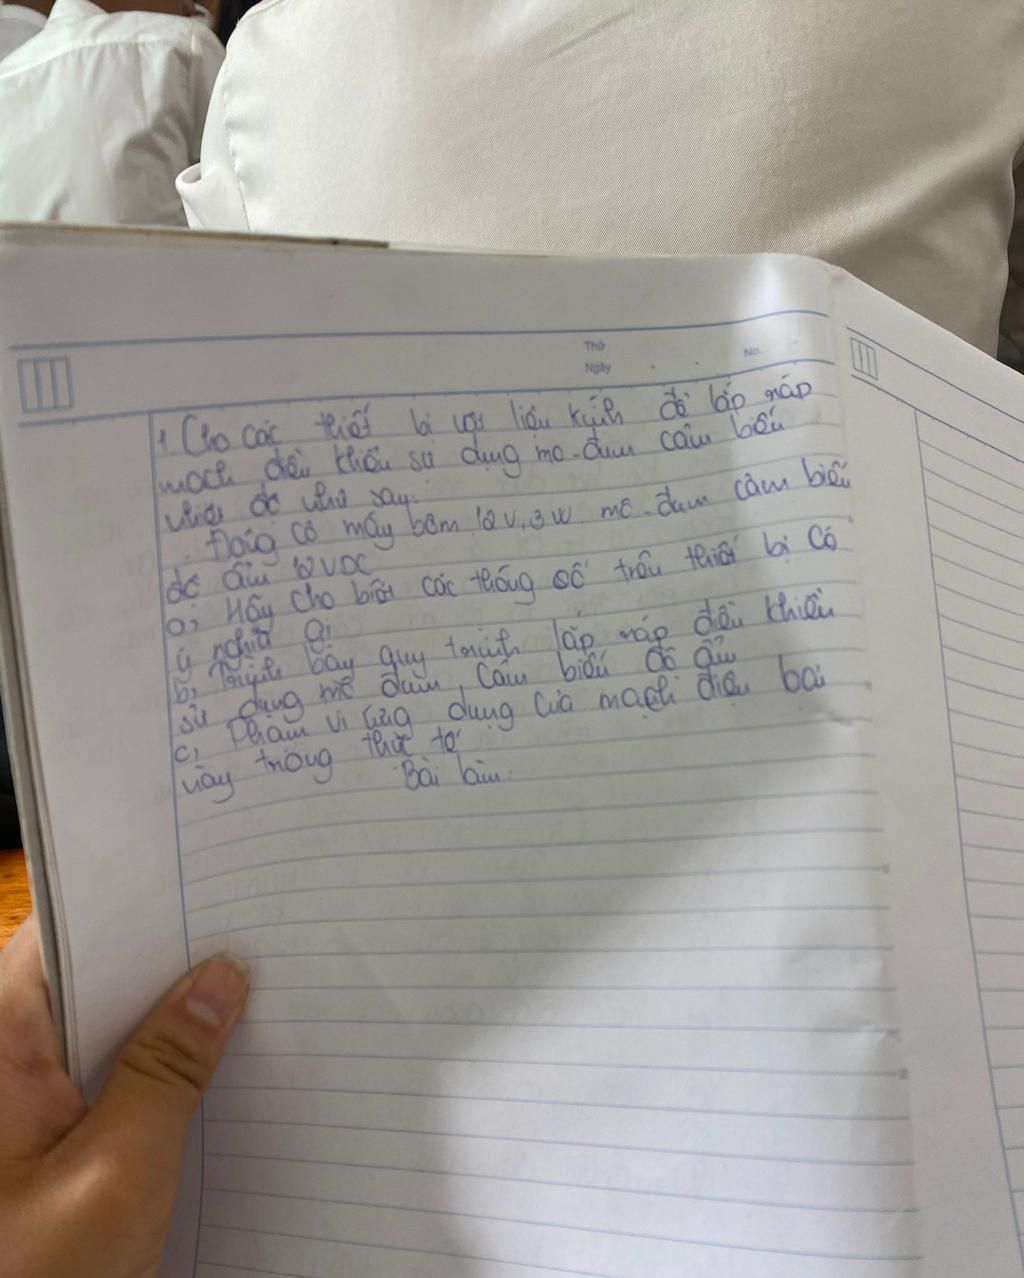 Thứ
Ngày
No.
1. Cho các thiết bị vật liệu kinh để lắp ráp
mạch điều khiển sử dụng mo-đum cảm biến
như sau:
Động cơ máy bơm 12V, 3W. mô-đum cảm biến
độ ẩm 12VDC
a, Hãy cho biết các thông số trên thiết bị có
ý nghĩa gì
b, Trình bày quy trình lắp ráp điều khiển
sử dụng mô đum cảm biến độ ẩm
c, Phạm vi ứng dụng của mạch điện bai
này trong thực tế
Bài làm: